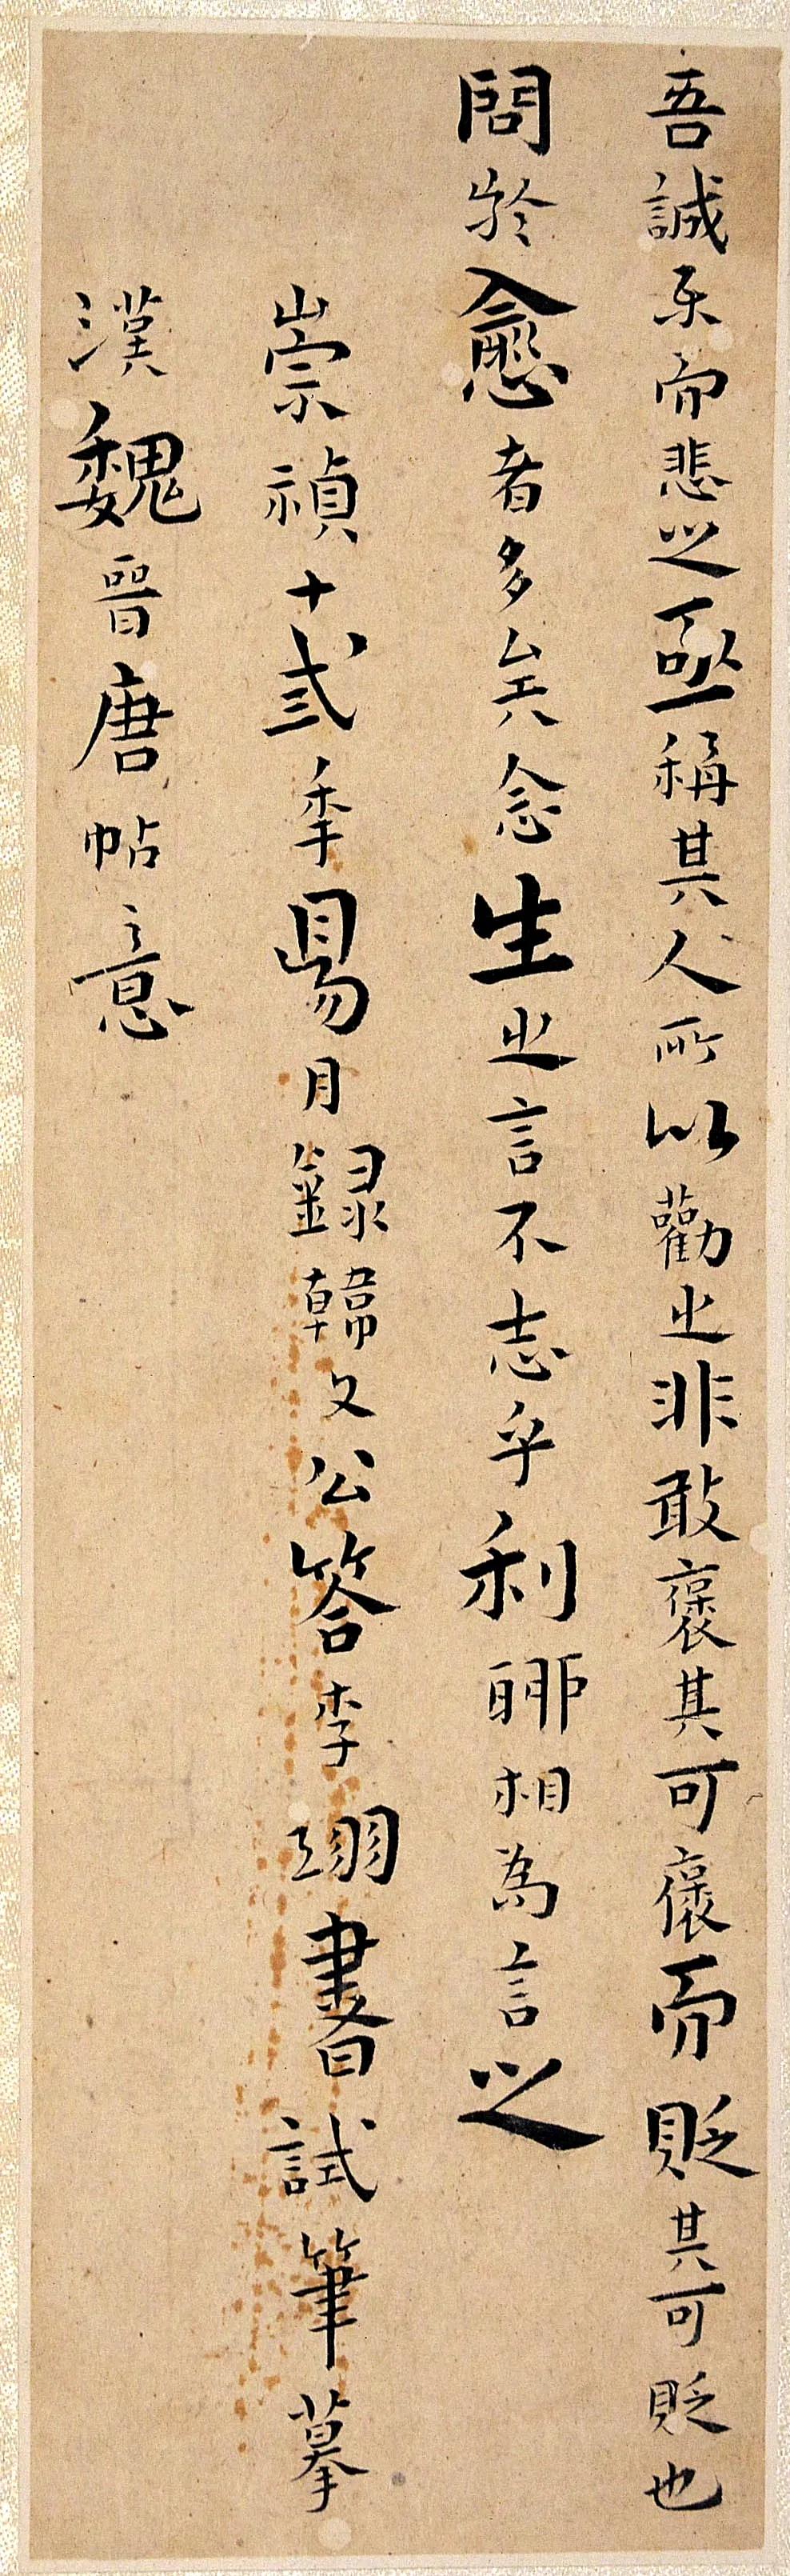 吾誠乐而悲之亟稱其人所以勸之非敢褒其可褒而貶其可貶也
問於愈者多矣念生之言不志乎利聊相為言之
崇禎十弎季昜月錄韓文公答李翊書試筆摹
漢魏晉唐帖意